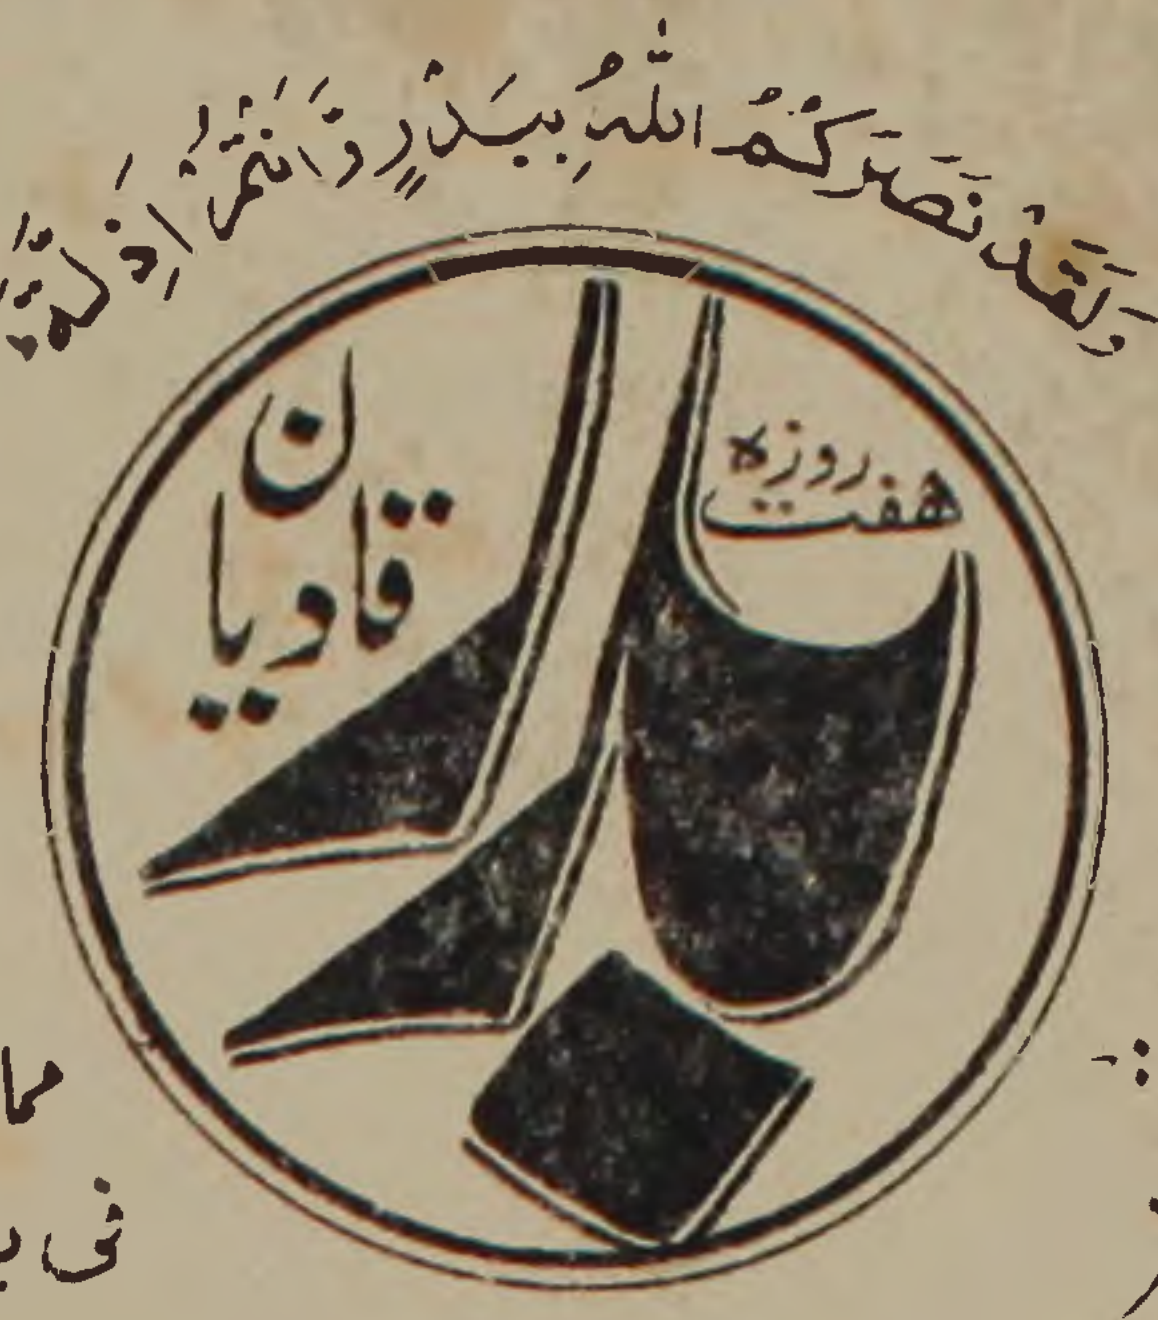 وَلَقَدْ نَصَرَكُمُ اللّٰهُ بِبَدْرٍ وَّاَنْتُمْ اَذِلَّةٌ
ہفت روزہ
بدر
قادیان
فی